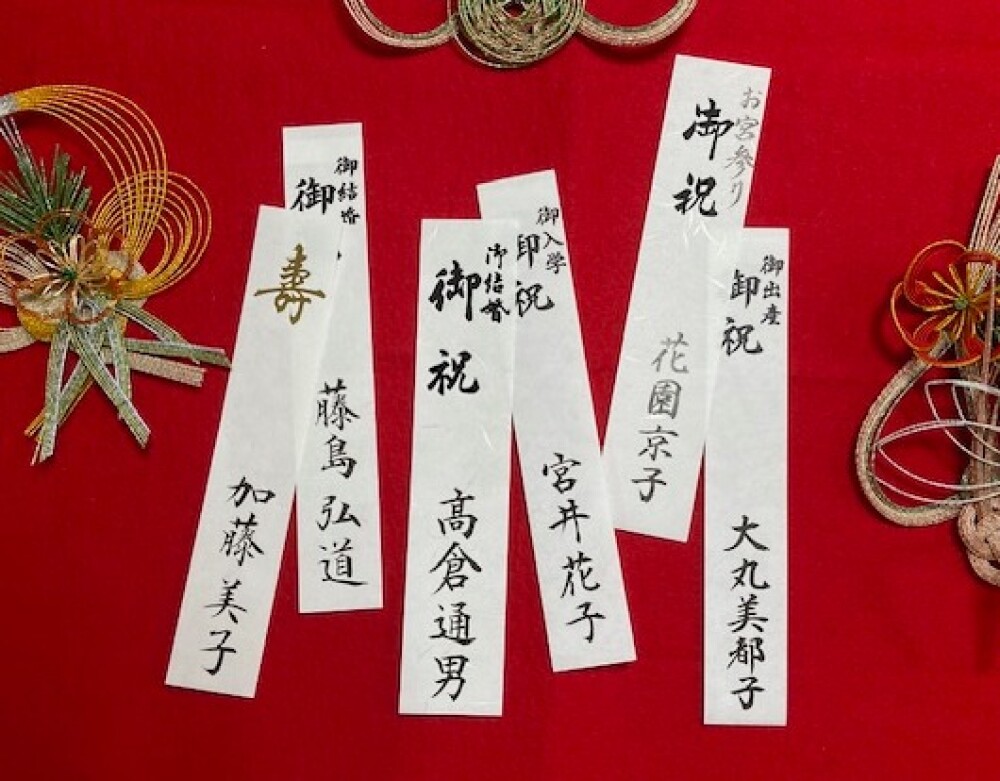 御結婚
御
藤島弘道
寿
加藤美子
御結婚
御祝
高倉通男
御入学
御祝
宮井花子
お宮参り
御祝
花園京子
御出産
御祝
大丸美都子